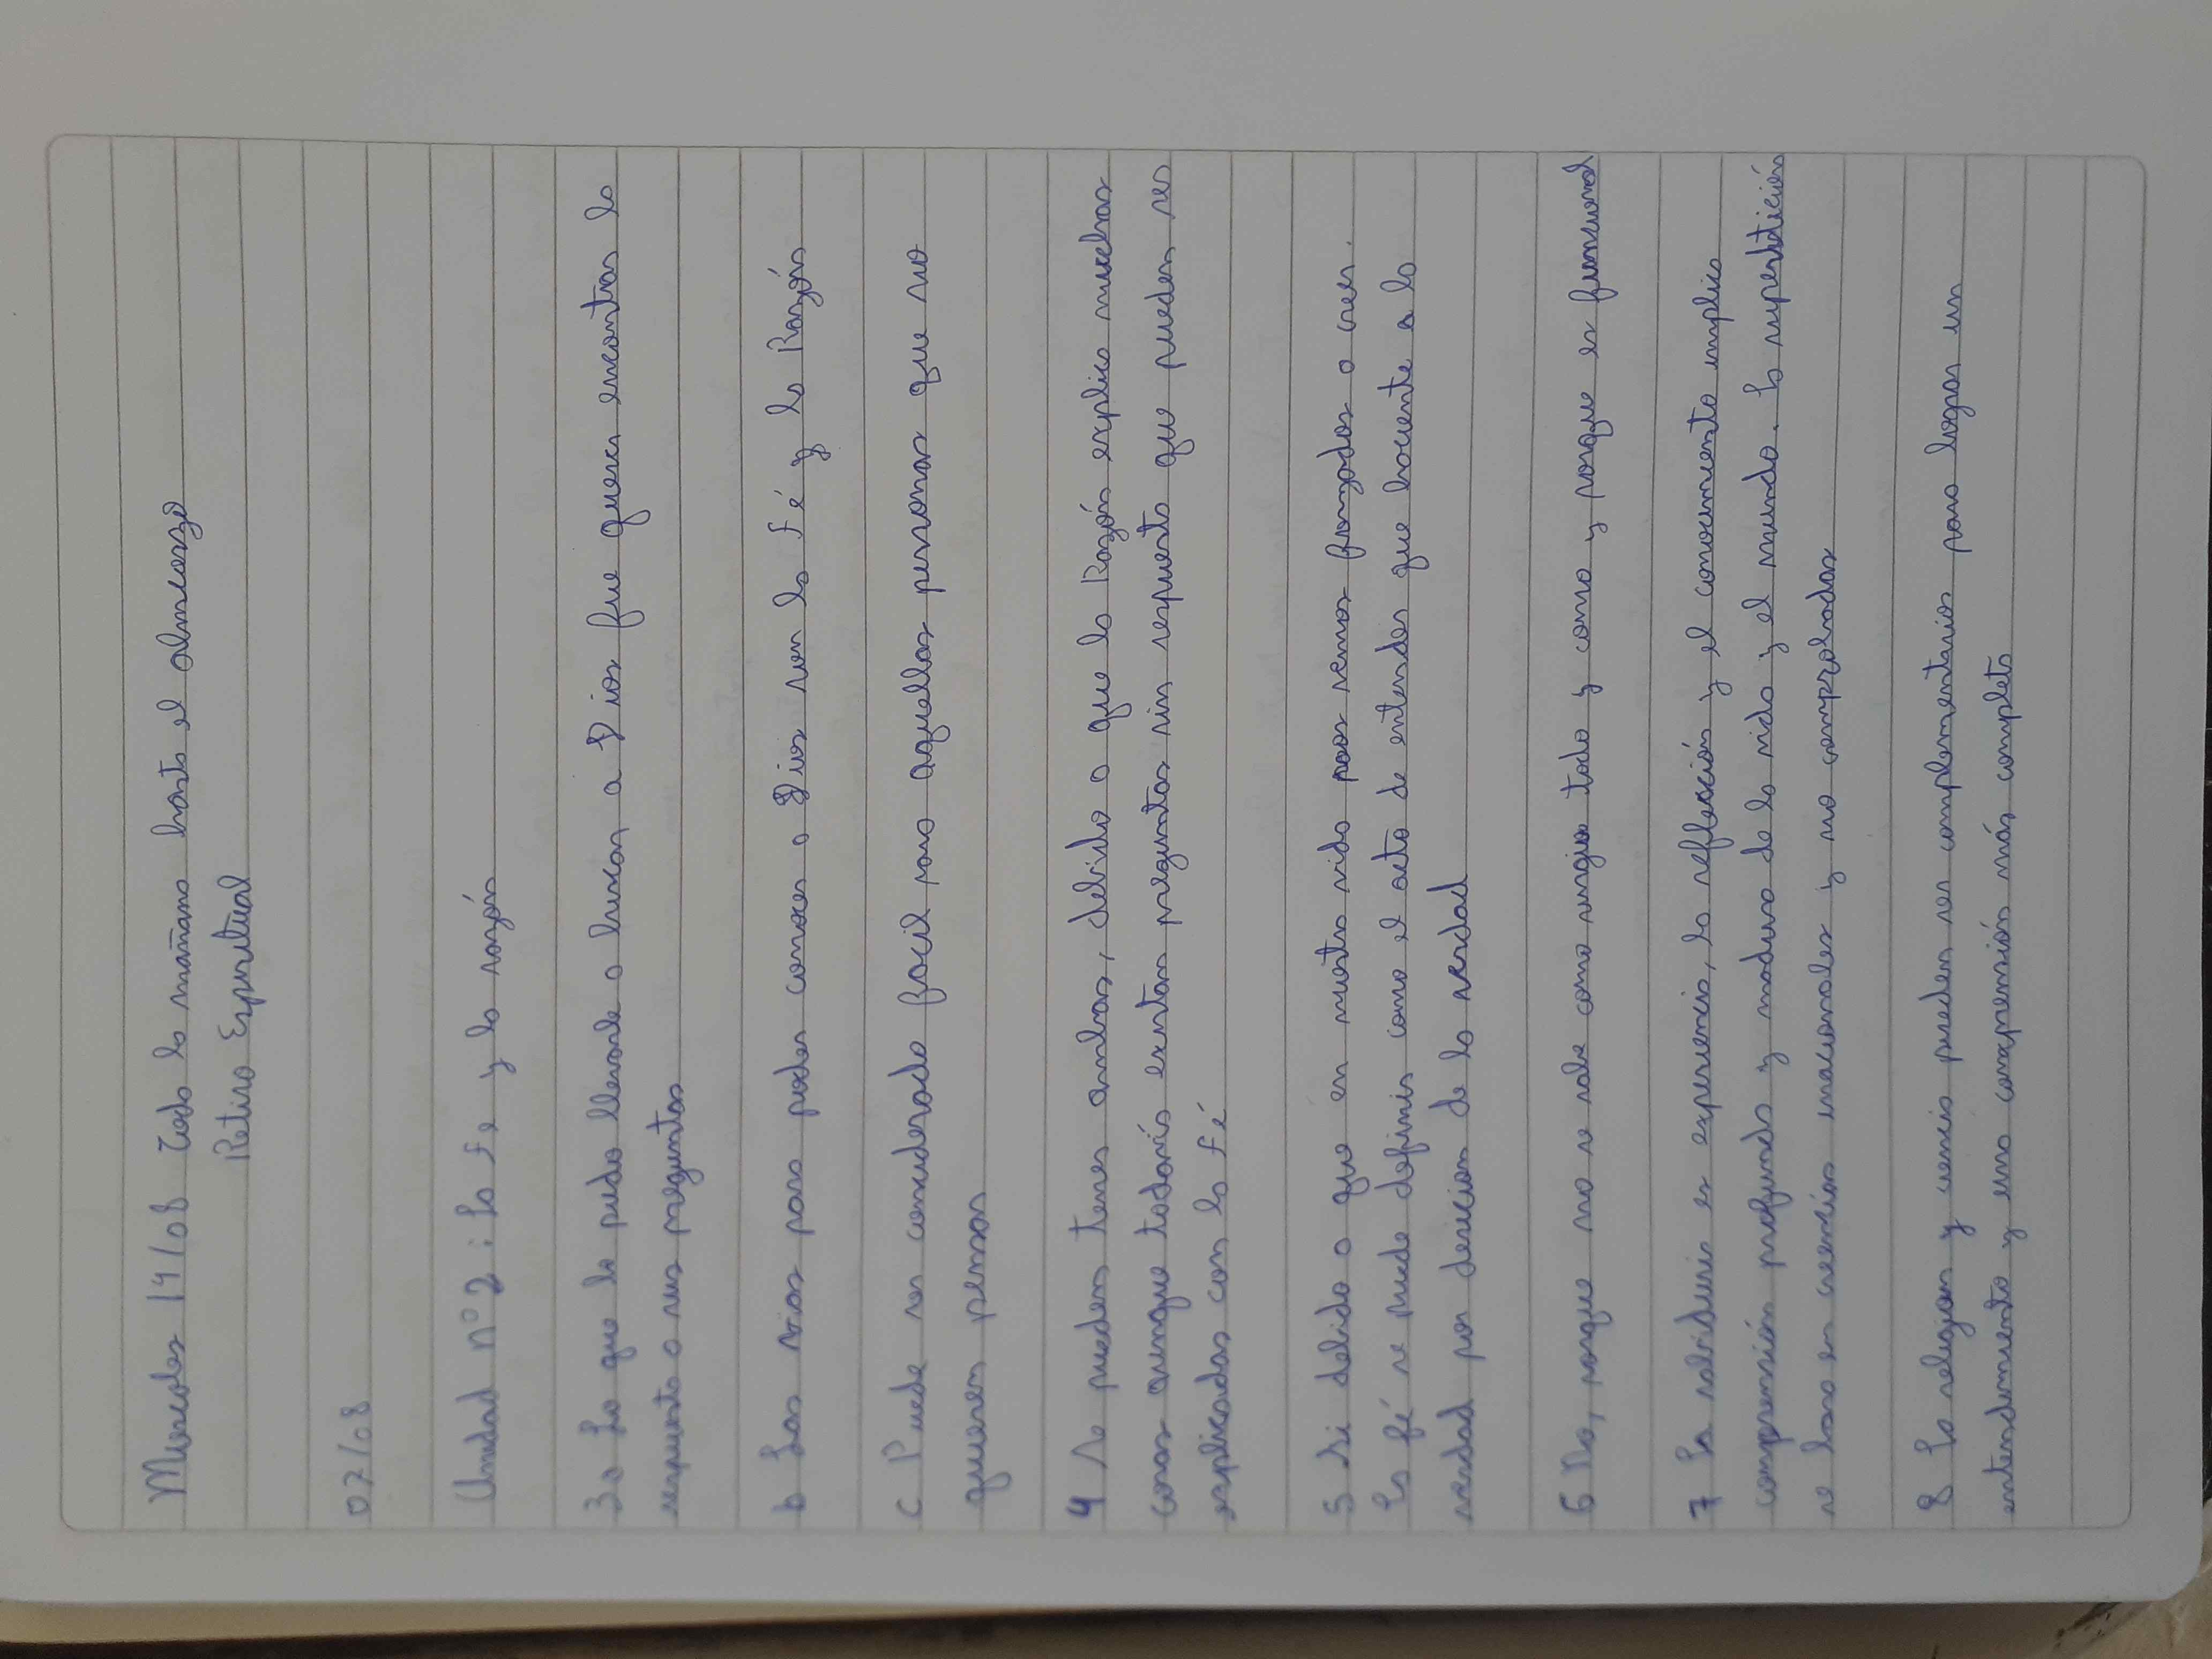 Miercoles 14/08 Toda la mañana hasta el almuerzo
Retiro Espiritual
07/08
Unidad n° 2 : La Fe y la razón
3a Lo que lo pudo llevarle a buscar a Dios fue querer encontrar la
respuesta a sus preguntas
b Las vias para poder conocer a Dios son la Fé y la Razón
c Puede ser considerado facil para aquellas personas que no
quieren pensar
4 Se pueden tener ambas, debido a que la Razón explica muchas
cosas aunque todavía existan preguntas sin respuesta que pueden ser
explicadas con la Fé
5 Si debido a que en nuestra vida somos forzados a creer.
La fé se puede definir como el acto de entender que hacerte a la
verdad por decision de la verdad
6 No, porque no se sabe como surgio todo y como y porque es funcional
7 La sabiduria es experiencia, la reflección y el conocimiento implica
comprensión profunda y madura de la vida y el mundo. La superstición
se basa en creencias irracionales y no comprobadas
8 La religion y ciencia pueden ser complementarios para lograr un
entendimiento y una comprensión más completa